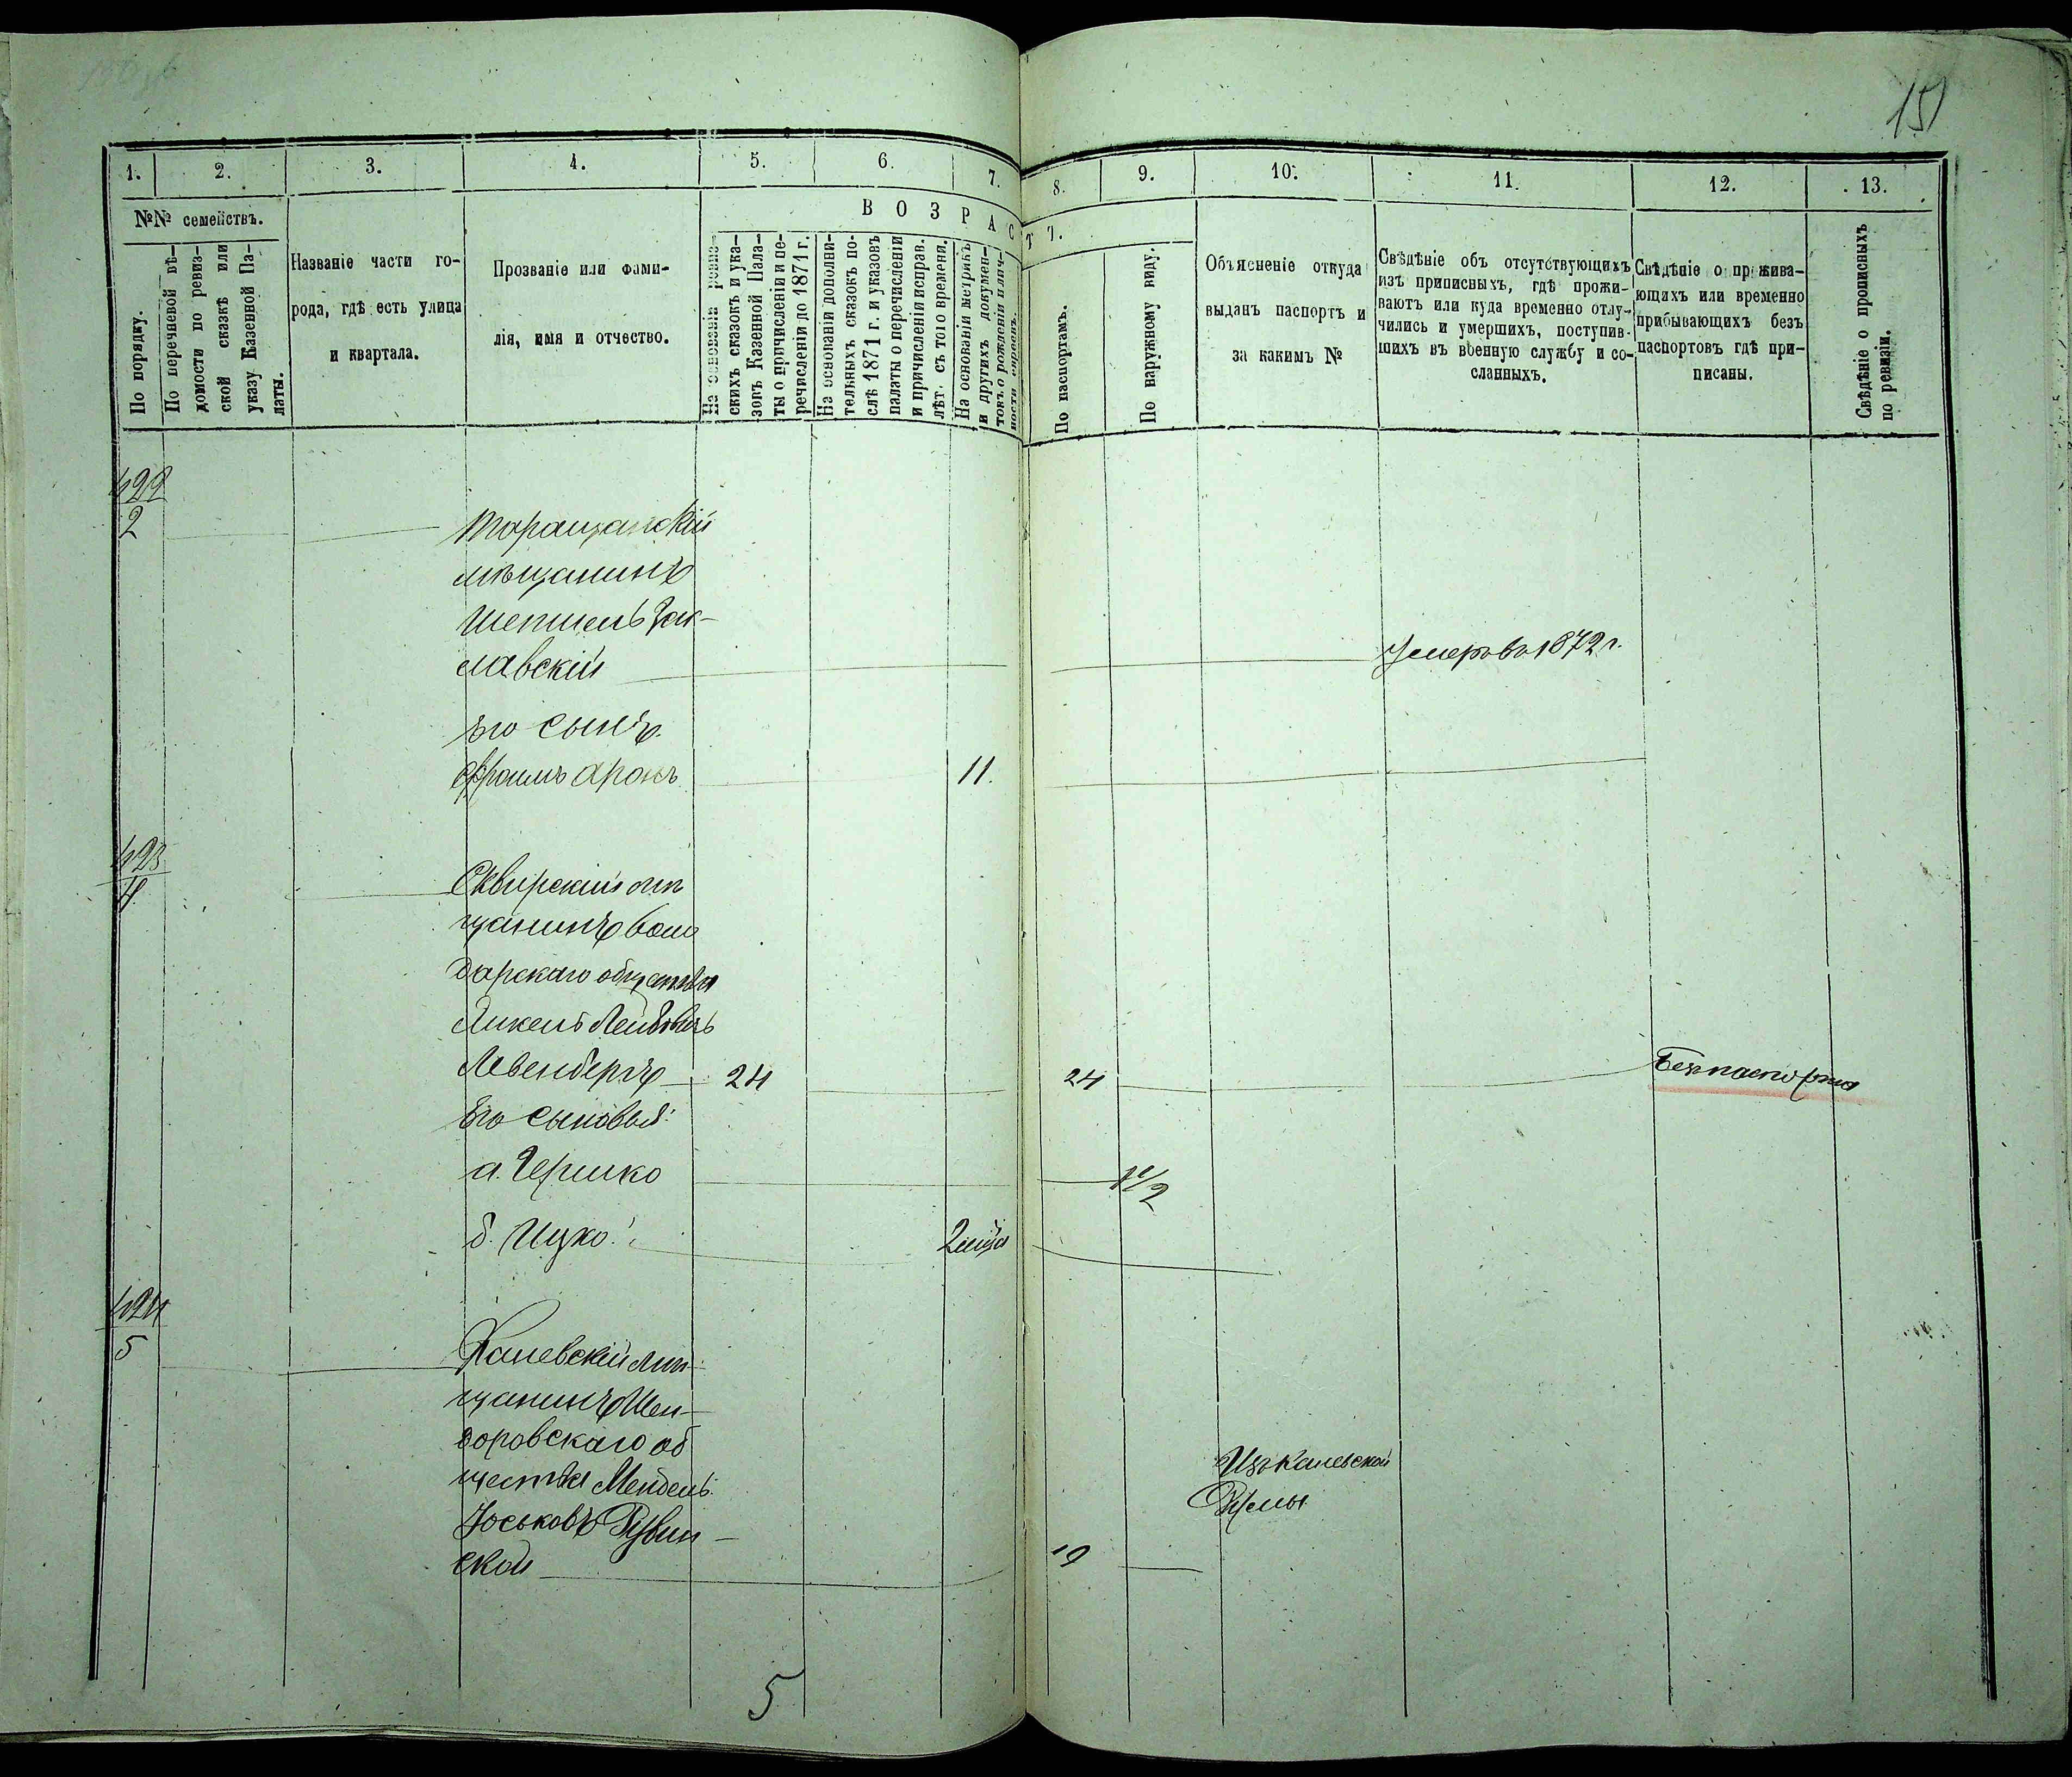 151
1.
2.
3.
4.
5.
6.
7.
8.
9.
10.
11.
12.
13.
№№ семействъ.
ВОЗРАСТЪ.
По порядку.
По перечневой вѣ-
домости по ревиз-
ской сказкѣ или
указу Казенной Па-
латы.
Названіе части го-
рода, гдѣ есть улица
и квартала.
Прозваніе или фами-
лія, имя и отчество.
На основаніи ревиз-
скихъ сказокъ и ука-
зовъ Казенной Пала-
ты о причисленіи и пе-
речисленіи до 1871 г.
На основаніи дополни-
тельныхъ сказокъ по-
слѣ 1871 г. и указовъ
палаты о перечисленіи
и причисленіи исправ.
лѣт. съ того времени.
На основаніи метрикъ
и другихъ докумен-
товъ о рожденіи и лич-
ности евреевъ.
По паспортамъ.
По наружному виду.
Объясненіе откуда
выданъ паспортъ и
за какимъ №
Свѣдѣніе объ отсутствующихъ
изъ приписныхъ, гдѣ прожи-
ваютъ или куда временно отлу-
чились и умершихъ, поступив-
шихъ въ военную службу и со-
сланныхъ.
Свѣдѣніе о прожива-
ющихъ или временно
прибывающихъ безъ
паспортовъ гдѣ при-
писаны.
Свѣдѣніе о прописныхъ
по ревизіи.
422
2
Таращанскій
мѣщанинъ
Шепшель Зас-
лавскій
Умеръ въ 1872 г.
Его сынъ
Эфроимъ Аронъ 11.
423
4
Сквирскій мѣ
щанинъ Воло
дарскаго общества
Янкель Лейбовъ
Левенбергъ 24 24 Безпаспорта
Его сыновья:
а. Гершко 1 1/2
б. Ицко 2 мѣс
424
5
Каневскій мѣ
щанинъ Шен-
доровскаго об
щества Мендель
Іоськовъ Рувин-
ской 19
Изъ Каневской
Думы
5